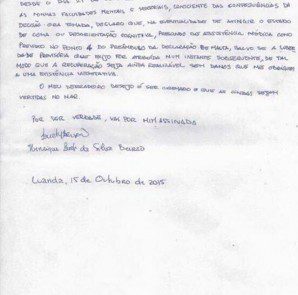 AS MINHAS FACULDADES MENTAIS E CORPORAIS, CONSCIENTE DAS CONSEQUÊNCIAS DA
DECISÃO ORA TOMADA, DECLARO QUE, NA EVENTUALIDADE DE ATINGIR O ESTADO
DE COMA OU DESORIENTAÇÃO COGNITIVA, PRESCINDO DA ASSISTÊNCIA MÉDICA COMO
PREVISTO NO PONTO 4 DO PREÂMBULO DA DECLARAÇÃO DE MALTA, SALVO SE A LIBER
DADE PROVISÓRIA QUE EXIJO FOR ATENDIDA NUM INSTANTE SUBSEQUENTE, DE TAL
MODO QUE A RECUPERAÇÃO SEJA AINDA REALIZÁVEL SEM DANOS QUE ME OBRIGUEM
A UMA EXISTÊNCIA VEGETATIVA.
O MEU DERRADEIRO DESEJO É SER CREMADO E QUE AS CINZAS SEJAM
VERTIDAS NO MAR.
POR SER VERDADE, VAI POR MIM ASSINADA
Henrique da Silva Beirão
Luanda, 15 de Outubro de 2015